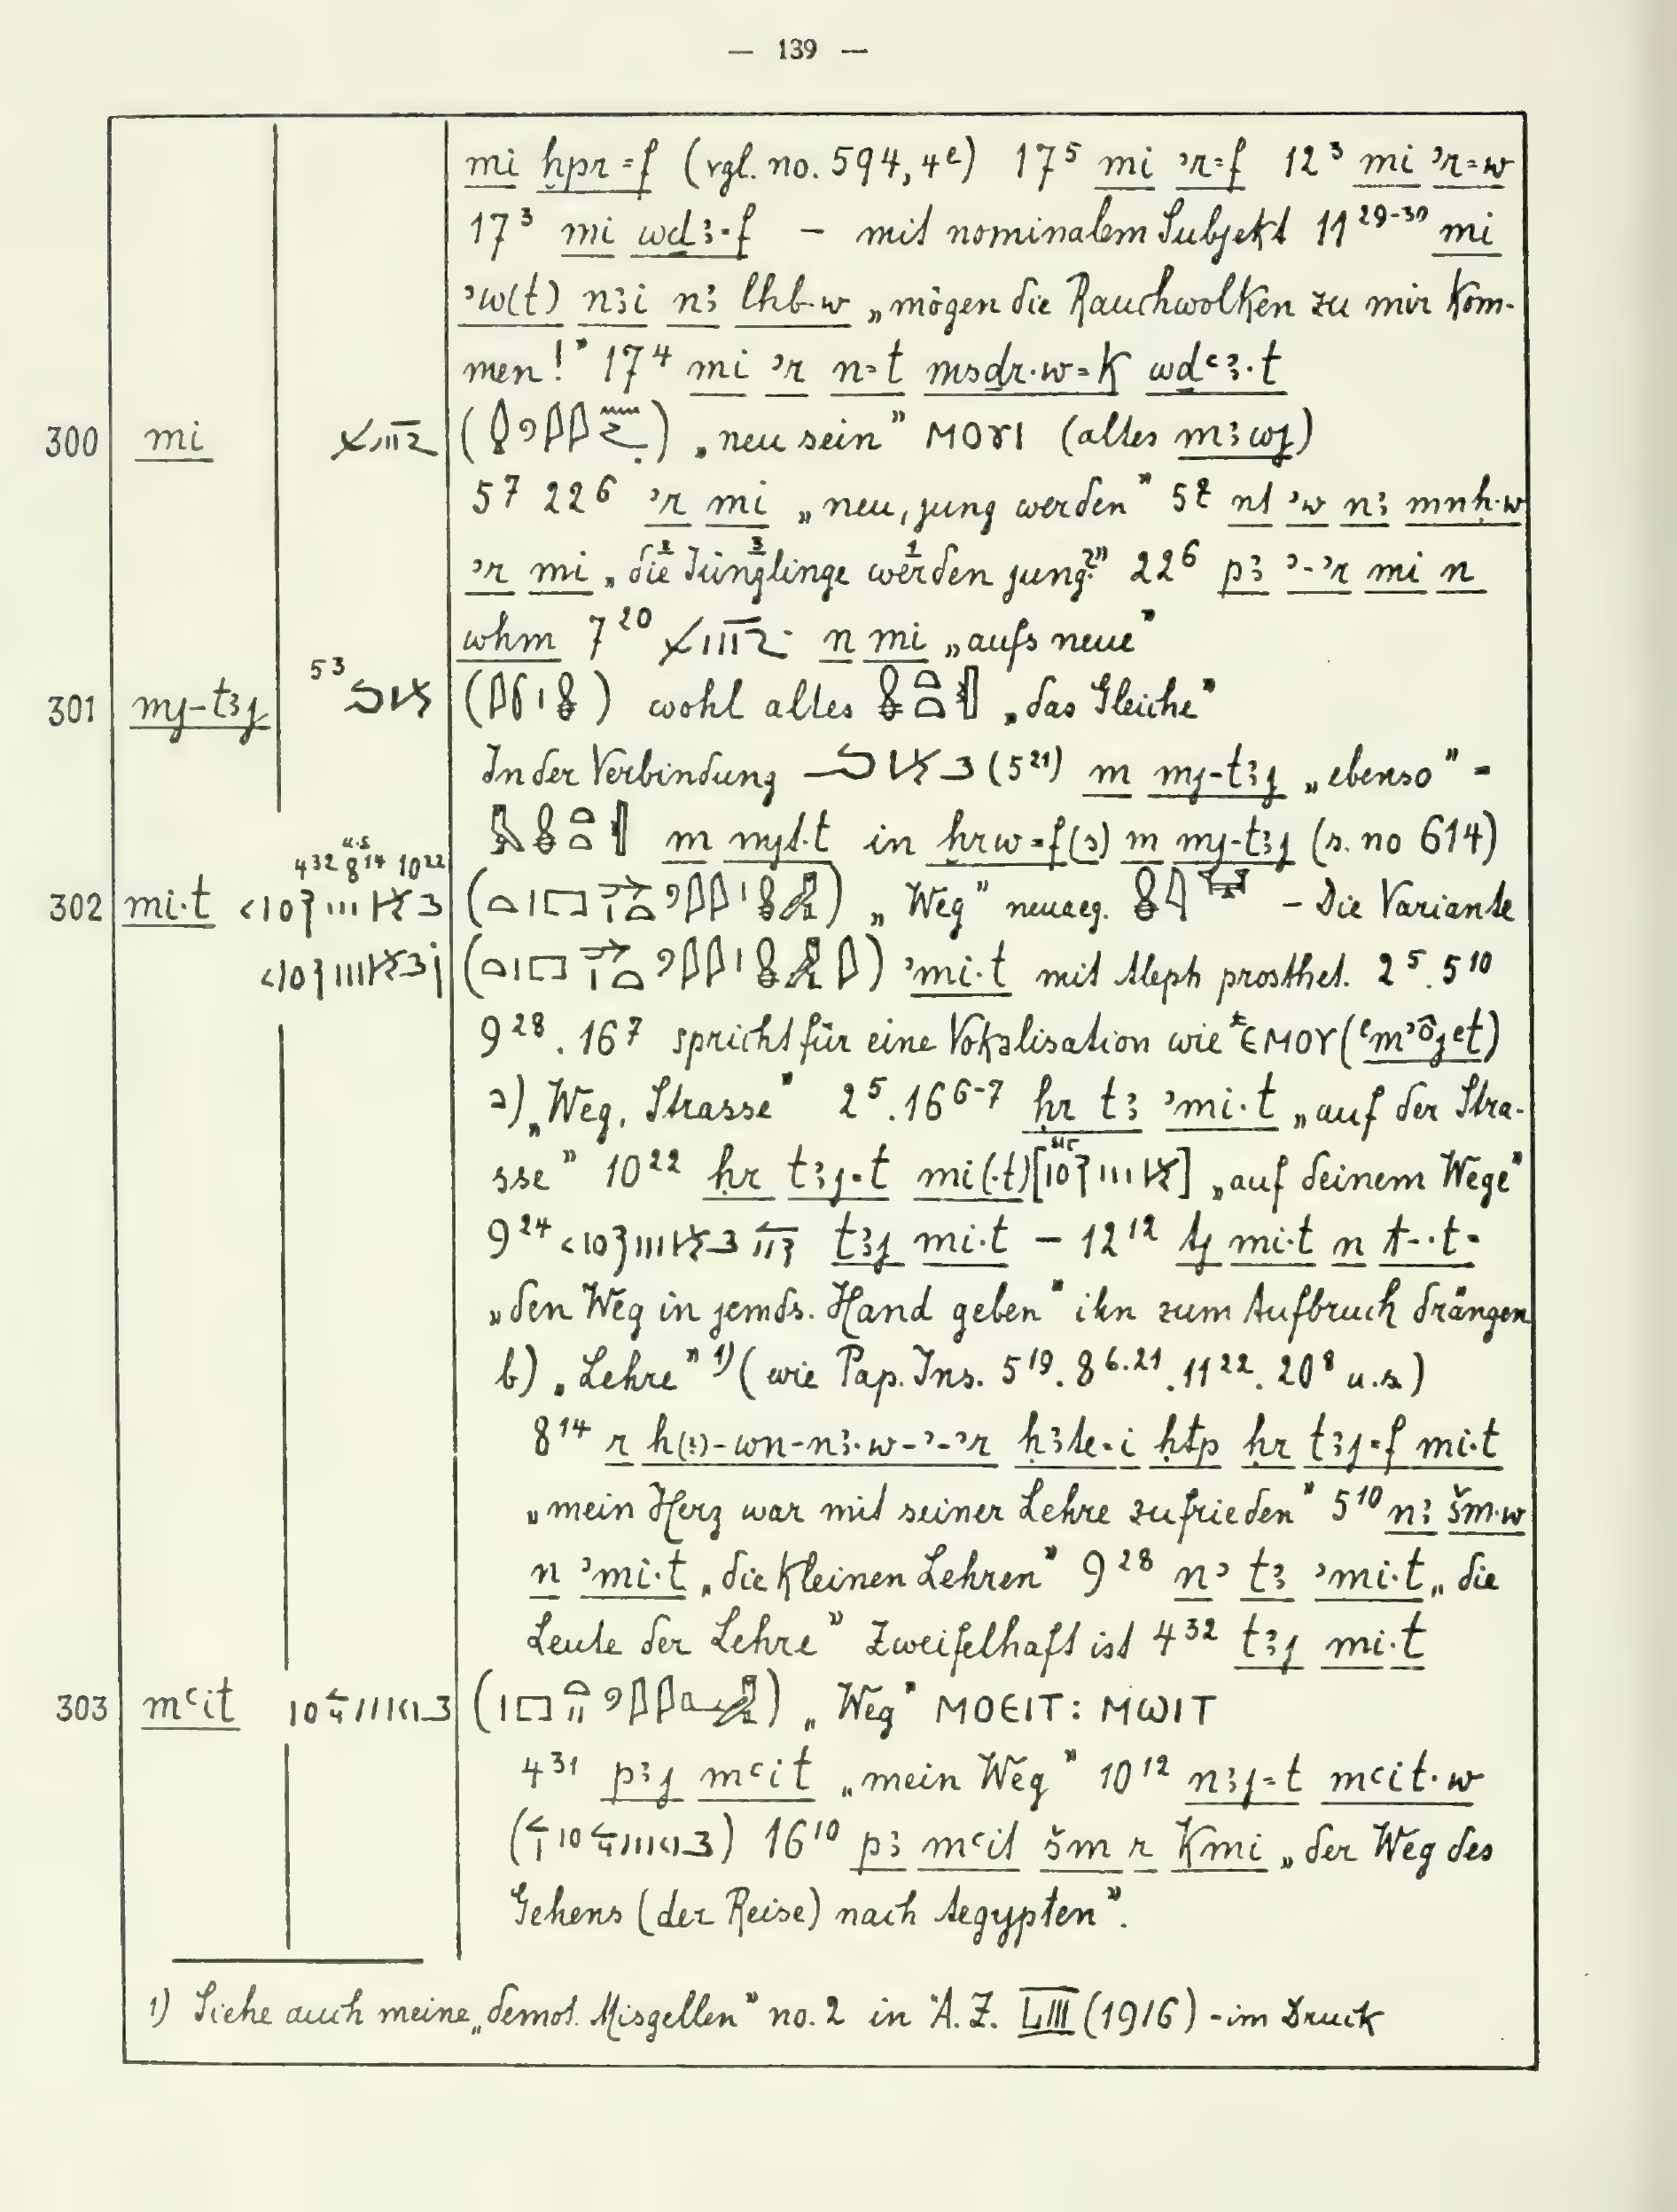 — 139 —
mi ḫpr=f (vgl. no. 594, 4e) 17⁵ mi ʾr=f 12³ mi ʾr=w
17³ mi wḏꜣ=f – mit nominalem Subjekt 11²⁹⁻³⁰ mi
ʾw(t) nꜣi nꜣ lhb·w „mögen die Rauchwolken zu mir kom-
men!” 17⁴ mi ʾr n=t msḏr·w=k wḏꜥꜣ·t
300 mi „neu sein” ⲘⲞⲨⲒ (altes mꜣwj)
5⁷ 22⁶ ʾr mi „neu, jung werden” 5⁸ nt ʾw nꜣ mnḥ·w
ʾr mi „die Jünglinge werden jung?” 22⁶ pꜣ ʾ-ʾr mi n
whm 7²⁰ n mi „aufs neue”
301 mj-tꜣj 5³ wohl altes „das Gleiche”
In der Verbindung (5²¹) m mj-tꜣj „ebenso” =
m mjt·t in hrw=f(s) m mj-tꜣj (s. no 614)
302 mi·t 4³² 8¹⁴ 10²² „Weg” neuaeg. – Die Variante
ʾmi·t mit Aleph prosthet. 2⁵. 5¹⁰
9²⁸. 16⁷ spricht für eine Vokalisation wie *ⲈⲘⲞⲨ (ᵉmʾôjet)
a) „Weg, Strasse” 2⁵. 16⁶⁻⁷ ḥr tꜣ ʾmi·t „auf der Stra-
sse” 10²² ḥr tꜣj=t mi(·t) „auf deinem Wege”
9²⁴ tꜣj mi·t – 12¹² tj mi·t n t-·t=
„den Weg in jemds. Hand geben” ihn zum Aufbruch drängen
b) „Lehre” ¹⁾ (wie Pap. Ins. 5¹⁹. 8⁶·²¹. 11²². 20⁸ u.s.)
8¹⁴ r h(ꜣ)-wn-nꜣ·w-ʾ-ʾr ḥꜣte=i ḥtp ḥr tꜣj=f mi·t
„mein Herz war mit seiner Lehre zufrieden” 5¹⁰ nꜣ šm·w
n ʾmi·t „die Kleinen Lehren” 9²⁸ nʾ tꜣ ʾmi·t „die
Leute der Lehre” Zweifelhaft ist 4³² tꜣj mi·t
303 mꜥit „Weg” ⲘⲞⲈⲒⲦ : ⲘⲰⲒⲦ
4³¹ pꜣj mꜥit „mein Weg” 10¹² nꜣj=t mꜥit·w
16¹⁰ pꜣ mꜥit šm r Kmi „der Weg des
Gehens (der Reise) nach Aegypten”.
1) Siehe auch meine „demot. Misgellen” no. 2 in Ä. Z. LIII (1916) - im Druck